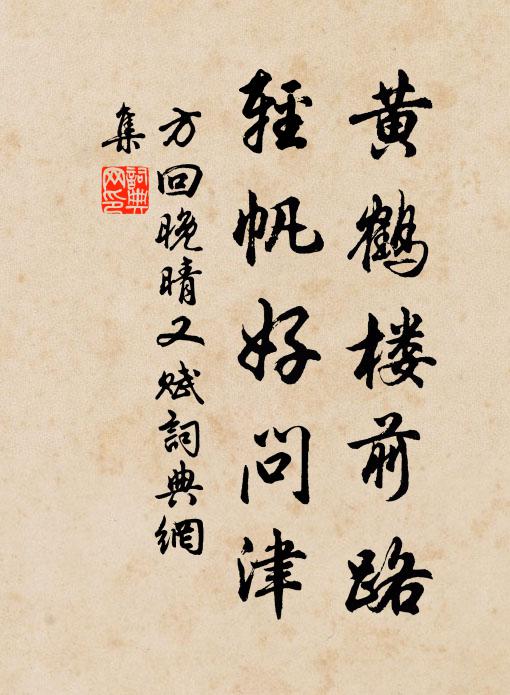 黄鹤楼前路
轻帆好问津
方回晚晴又赋詞典網
集
詞典网印